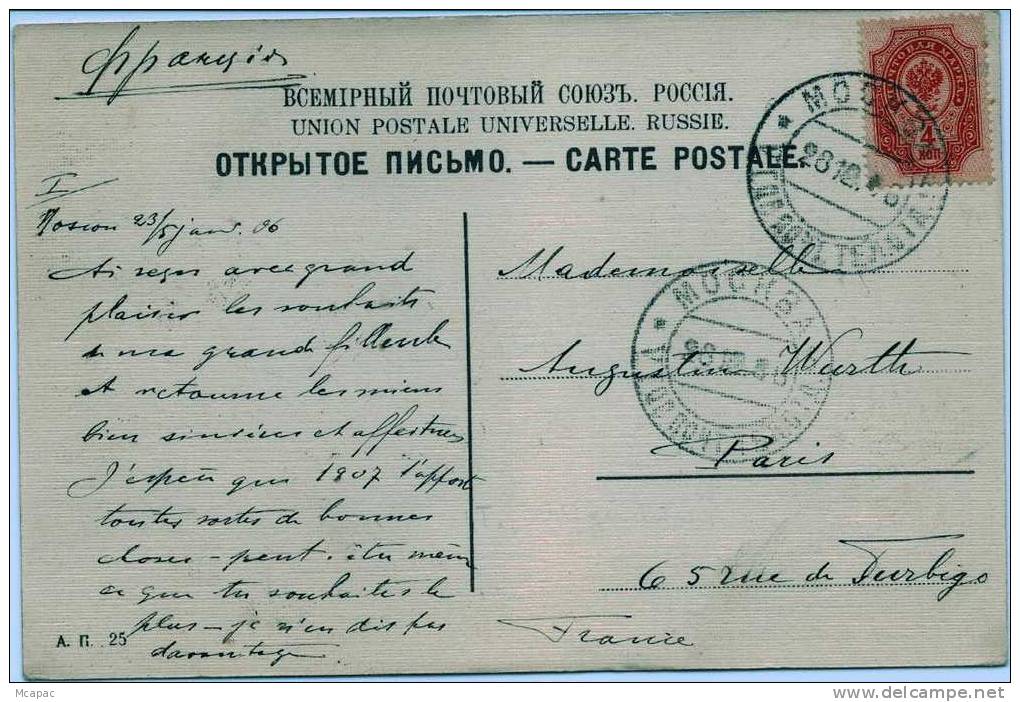 Франція
ВСЕМІРНЫЙ ПОЧТОВЫЙ СОЮЗЪ. РОССІЯ.
UNION POSTALE UNIVERSELLE. RUSSIE.
ОТКРЫТОЕ ПИСЬМО. — CARTE POSTALE.
ПОЧТОВАЯ МАРКА
4
КОП
МОСКВА
28 12
I
Moscou 23/5 janv. 06
Ai reçu avec grand
plaisir les souhaits
de ma grande filleule
et retourne les miens
bien sincères et affectueux
J'espère que 1907 t'apport
toutes sortes de bonnes
choses - peut-être même
ce que tu souhaites le
plus - je n'en dis pas
davantage
МОСКВА
Mademoiselle
Augustine Wurth
Paris
65 rue de Turbigo
France
А. П. 25
Mcapac
delcampe.net